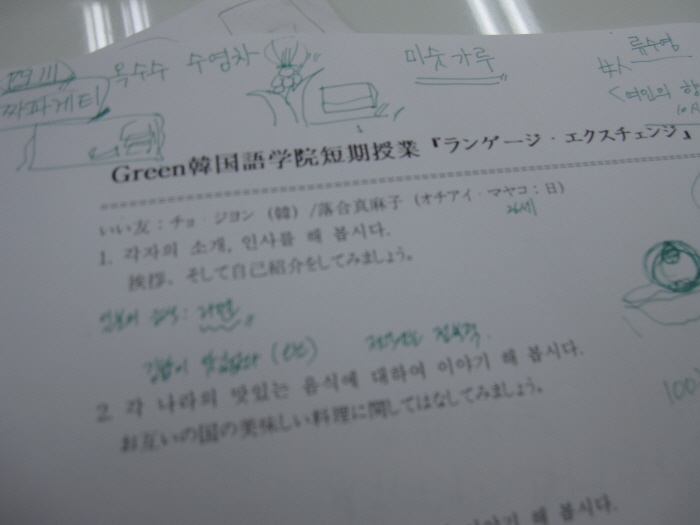 四川 옥수수 수염차 미숫가루 류수영
짜파게티 <여인의 향
Green韓国語学院短期授業『ランゲージ・エクスチェンジ』
いい友：チョ・ジヨン（韓）/落合真麻子（オチアイ・マヤコ：日）
26세
1. 각자의 소개, 인사를 해 봅시다.
挨拶、そして自己紹介をしてみましょう。
일본의 음식: 라면
김밥이
2. 각 나라의 맛있는 음식에 대하여 이야기 해 봅시다.
お互いの国の美味しい料理に関してはなしてみましょう。
100
이야기 해 봅시다.